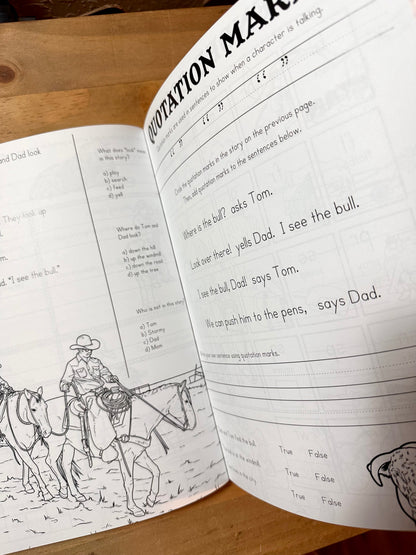 and Dad look
They look up
"I see the bull."
What does "look" mean
in this story?
a) play
b) search
c) feed
d) yell
Where do Tom and
Dad look?
a) down the hill
b) up the windmill
c) down the road
d) up the tree
Who is not in this story
a) Tom
b) Stormy
c) Dad
d) Mom
QUOTATION MAR
marks are used in sentences to show when a character is talking.
“ ” “ ” “ ”
Circle the quotation marks in the story on the previous page.
Then, add quotation marks to the sentences below.
Where is the bull? asks Tom.
Look over there! yells Dad. I see the bull.
I see the bull, Dad! says Tom.
We can push him to the pens, says Dad.
your own sentence using quotation marks.
the bull. True False
the windmill. True False
True False